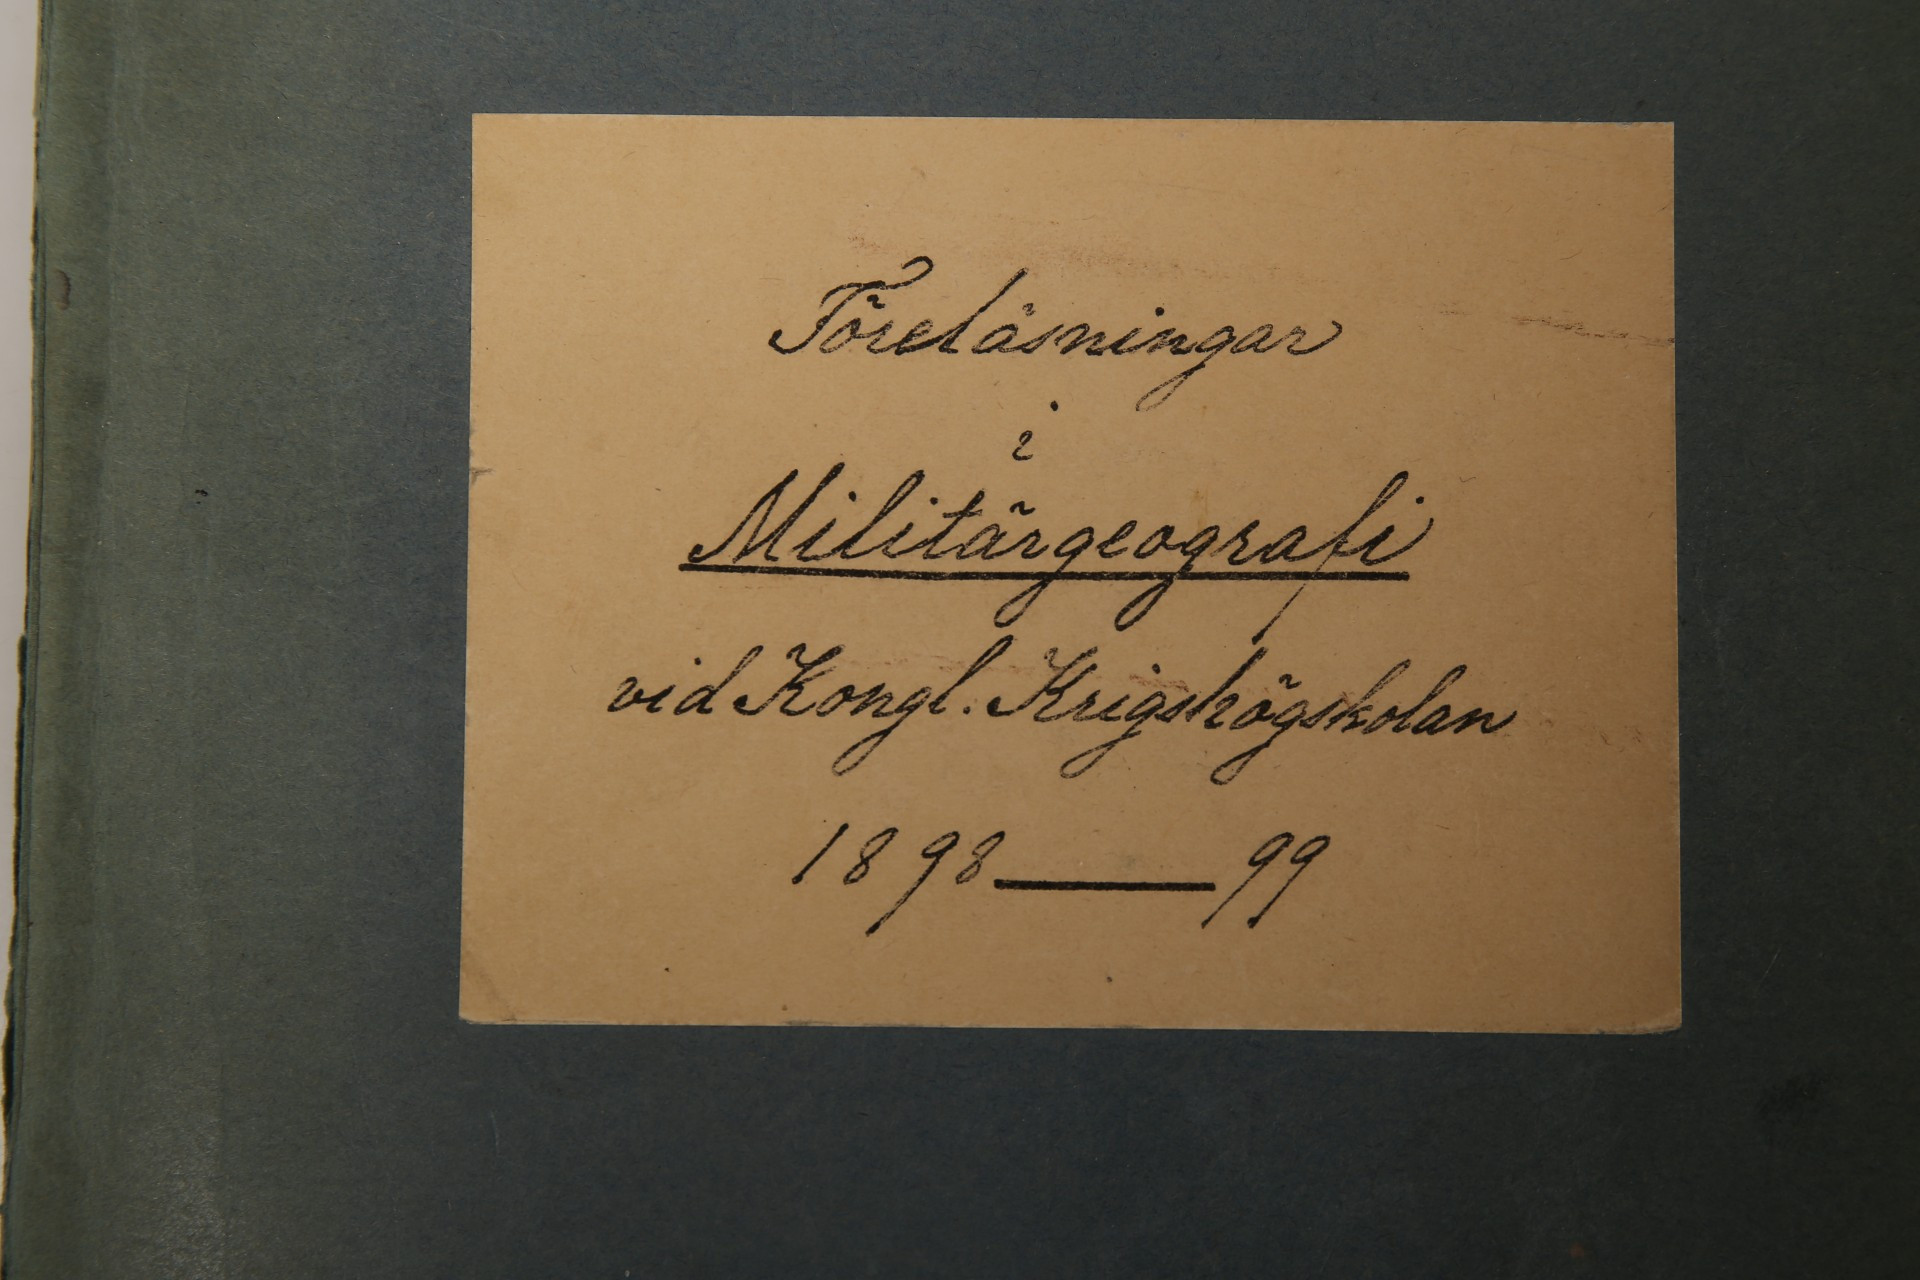 Föreläsningar
i
Militärgeografi
vid Kongl. Krigshögskolan
1898—99